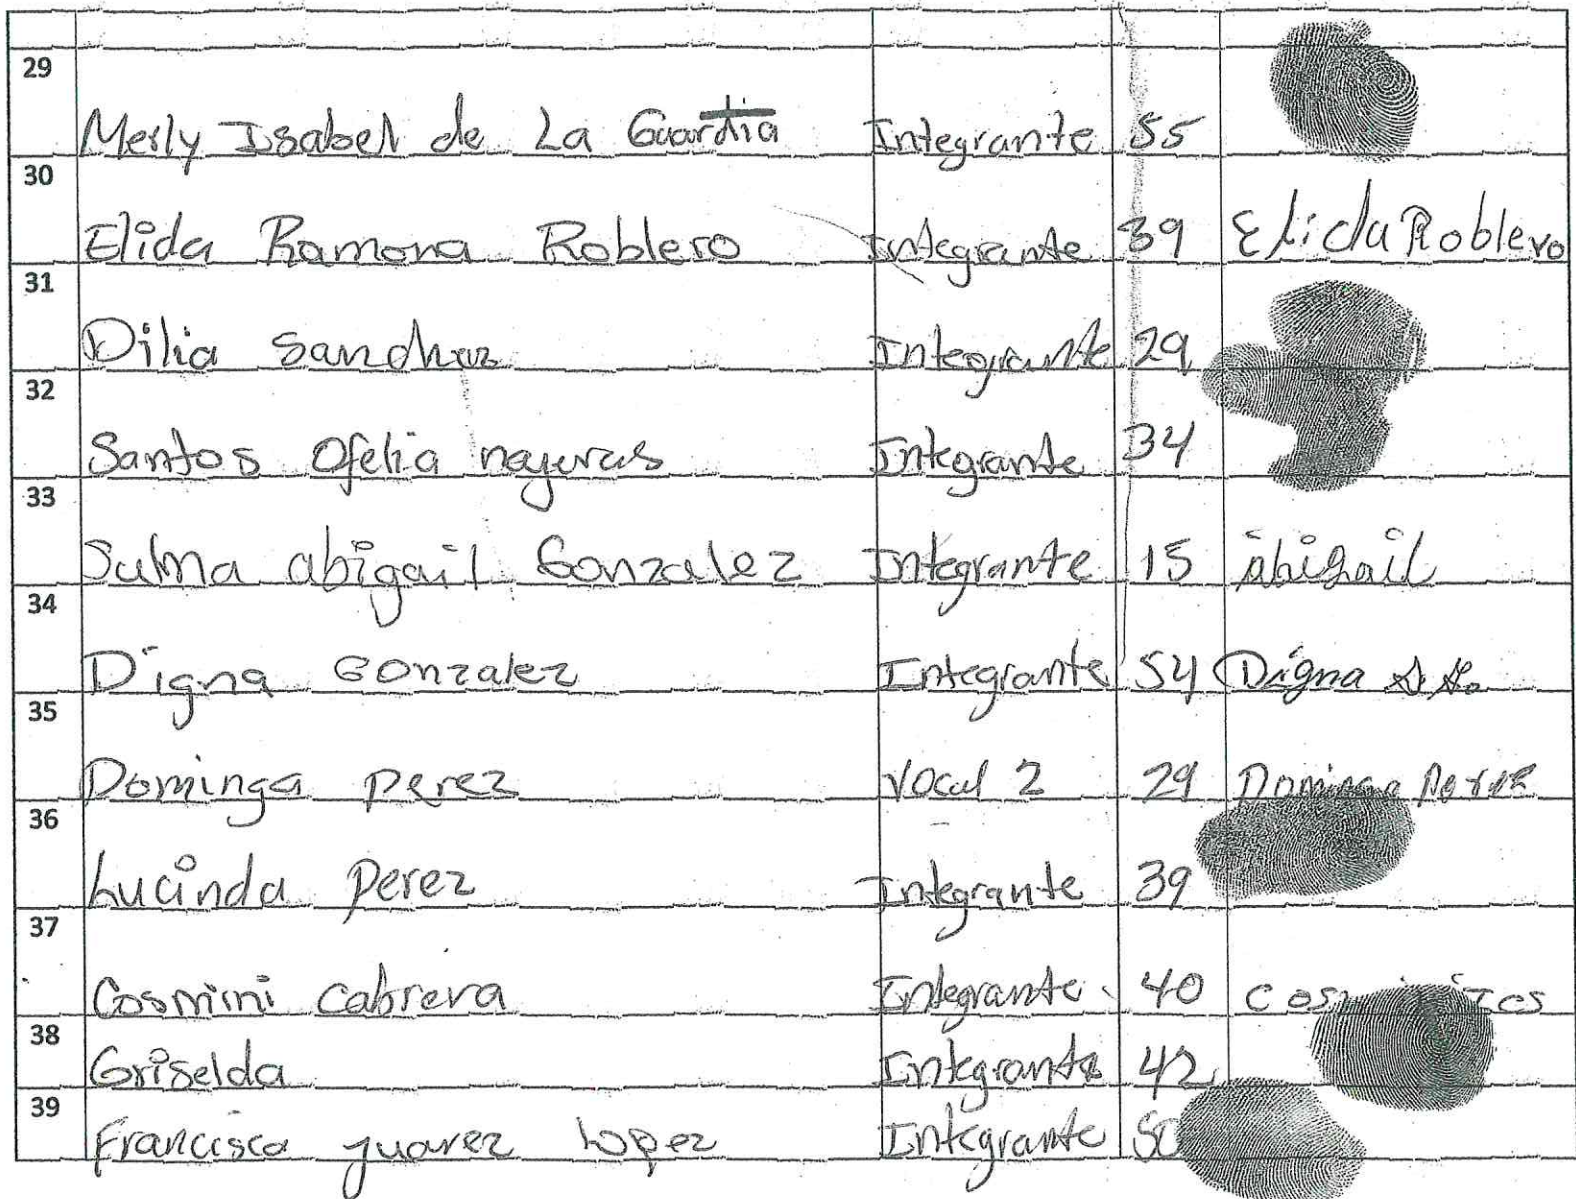 29
Merly Isabel de La Guardia Integrante 55
30
Elida Ramona Roblero Integrante 39 Elida Roblero
31
Dilia Sanchez Integrante 29
32
Santos Ofelia najeras Integrante 34
33
Sulma abigail Gonzalez Integrante 15 abigail
34
Digna Gonzalez Integrante 54 Digna
35
Dominga perez Vocal 2 29 Dominga Perez
36
Lucinda perez Integrante 39
37
Cosmini Cabrera Integrante 40
38
Griselda Integrante 42
39
Francisca juarez lopez Integrante